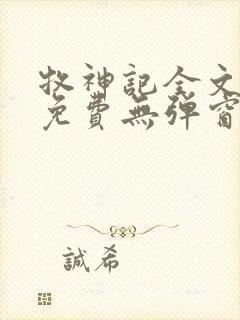 牧神記全文
免費無彈窗
誠希